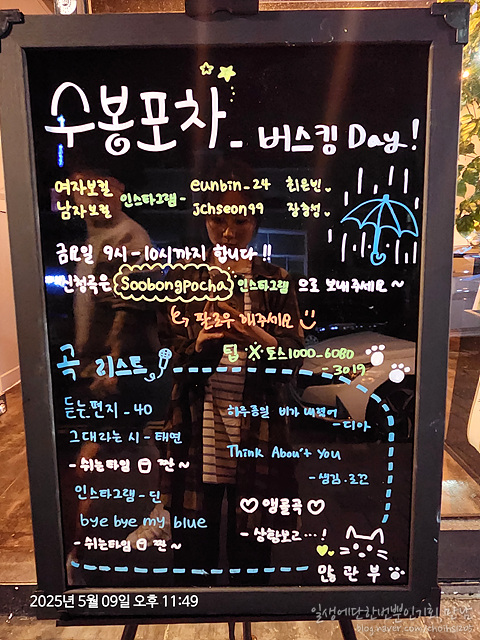 수봉포차 - 버스킹 Day!
여자보컬 인스타그램 - eunbin_24 최은빈
남자보컬 jchseon99 장충선
금요일 9시 - 10시까지 합니다!!
신청곡은 Soobongpocha 인스타그램 으로 보내주세요~
팔로우 해주세요
곡 리스트
팁 ※ 토스1000_6080
- 3019
듣는편지 - 40
그대라는 시 - 태연
- 쉬는타임 짠~
인스타그램 - 딘
bye bye my blue
- 쉬는타임 짠~
하루종일 비가 내렸어
- 디아
Think About You
- 샘김.로꼬
♡앵콜곡♡
- 상황보고…!
많관부
2025년 5월 09일 오후 11:49
일생에단한번뿐인기회
blog.naver.com/choihs1205